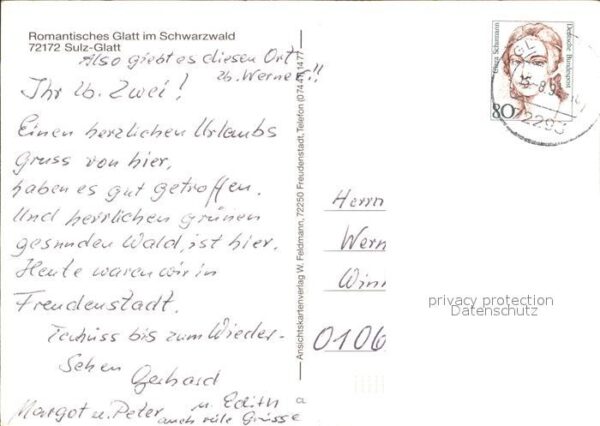 Romantisches Glatt im Schwarzwald
72172 Sulz-Glatt
Also giebt es diesen Ort
lb. Werner!!
Ihr lb. Zwei!
Einen herzlichen Urlaubs
Gruss von hier,
haben es gut getroffen.
Und herrlichen grünen
gesunden Wald, ist hier.
Heute waren wir in
Freudenstadt.
Tschüss bis zum Wieder-
sehen
Gerhard
u. Edith
Margot u. Peter
auch viele Grüsse
Ansichtskartenverlag W. Feldmann, 72250 Freudenstadt, Telefon
Deutsche Bundespost
Clara Schumann
80
Herrn
Wern
Winn
0106
privacy protection
Datenschutz